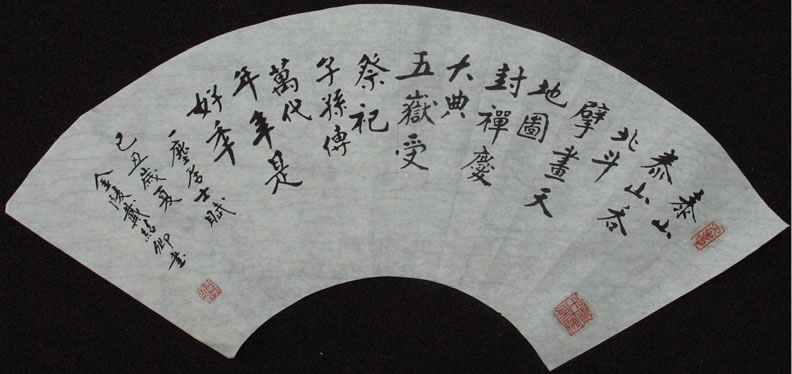 泰山
泰山吞
北斗
擘畫天
地圖
封禪慶
大典
五嶽受
祭祀
子孫傳
萬代
年年是
好季
一居士賦
己丑歲夏
金陵戴紹卿書